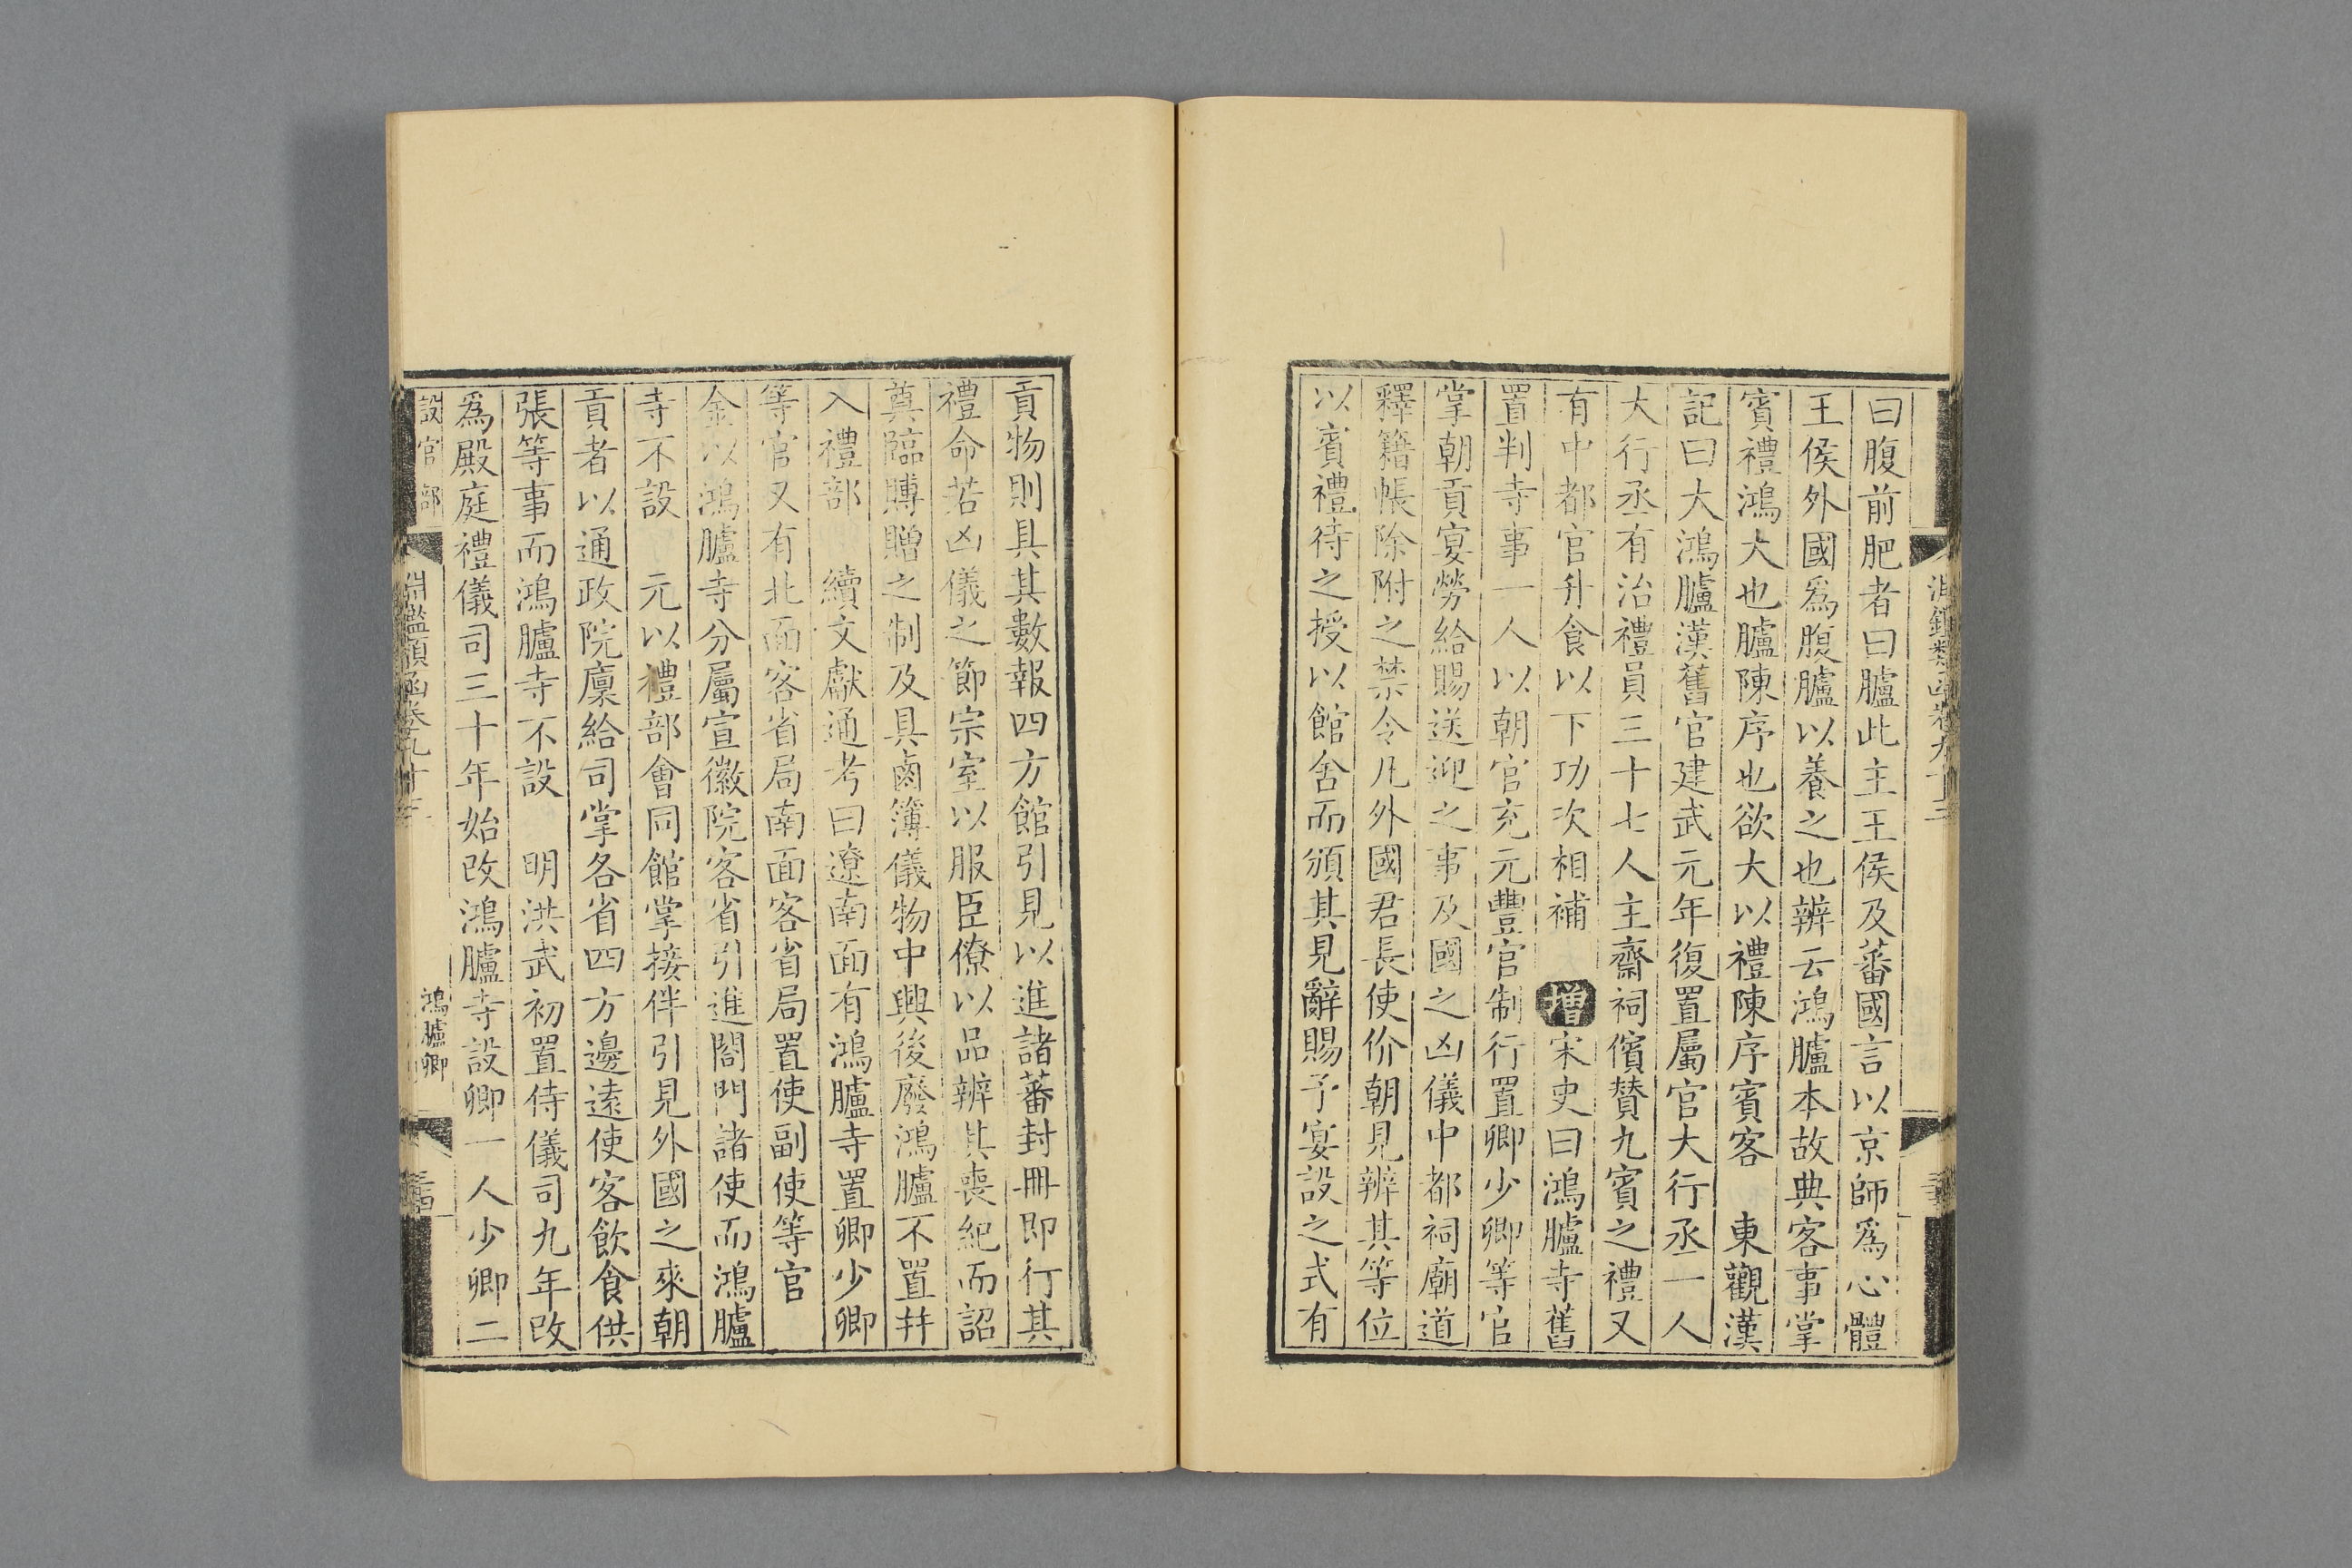 曰腹前肥者曰臚此主王侯及蕃國言以京師爲心體
王侯外國爲腹臚以養之也辨云鴻臚本故典客事掌
賓禮鴻大也臚陳序也欲大以禮陳序賓客 東觀漢
記曰大鴻臚漢舊官建武元年復置屬官大行丞一人
大行丞有治禮員三十七人主齋祠儐贊九賓之禮又
有中都官升食以下功次相補 增宋史曰鴻臚寺舊
置判寺事一人以朝官充元豐官制行置卿少卿等官
掌朝貢宴勞給賜送迎之事及國之凶儀中都祠廟道
釋籍帳除附之禁令凡外國君長使价朝見辨其等位
以賓禮待之授以館舍而頒其見辭賜予宴設之式有
貢物則具其數報四方館引見以進諸蕃封冊即行其
禮命若凶儀之節宗室以服臣僚以品辨其喪紀而詔
奠臨賻贈之制及具鹵簿儀物中興後廢鴻臚不置幷
入禮部 續文獻通考曰遼南面有鴻臚寺置卿少卿
等官又有北面客省局南面客省局置使副使等官
金以鴻臚寺分屬宣徽院客省引進閤門諸使而鴻臚
寺不設 元以禮部會同館掌接伴引見外國之來朝
貢者以通政院廩給司掌各省四方邊遠使客飲食供
張等事而鴻臚寺不設 明洪武初置侍儀司九年改
爲殿庭禮儀司三十年始改鴻臚寺設卿一人少卿二
設官部
淵鑑類函卷九十三
鴻臚卿